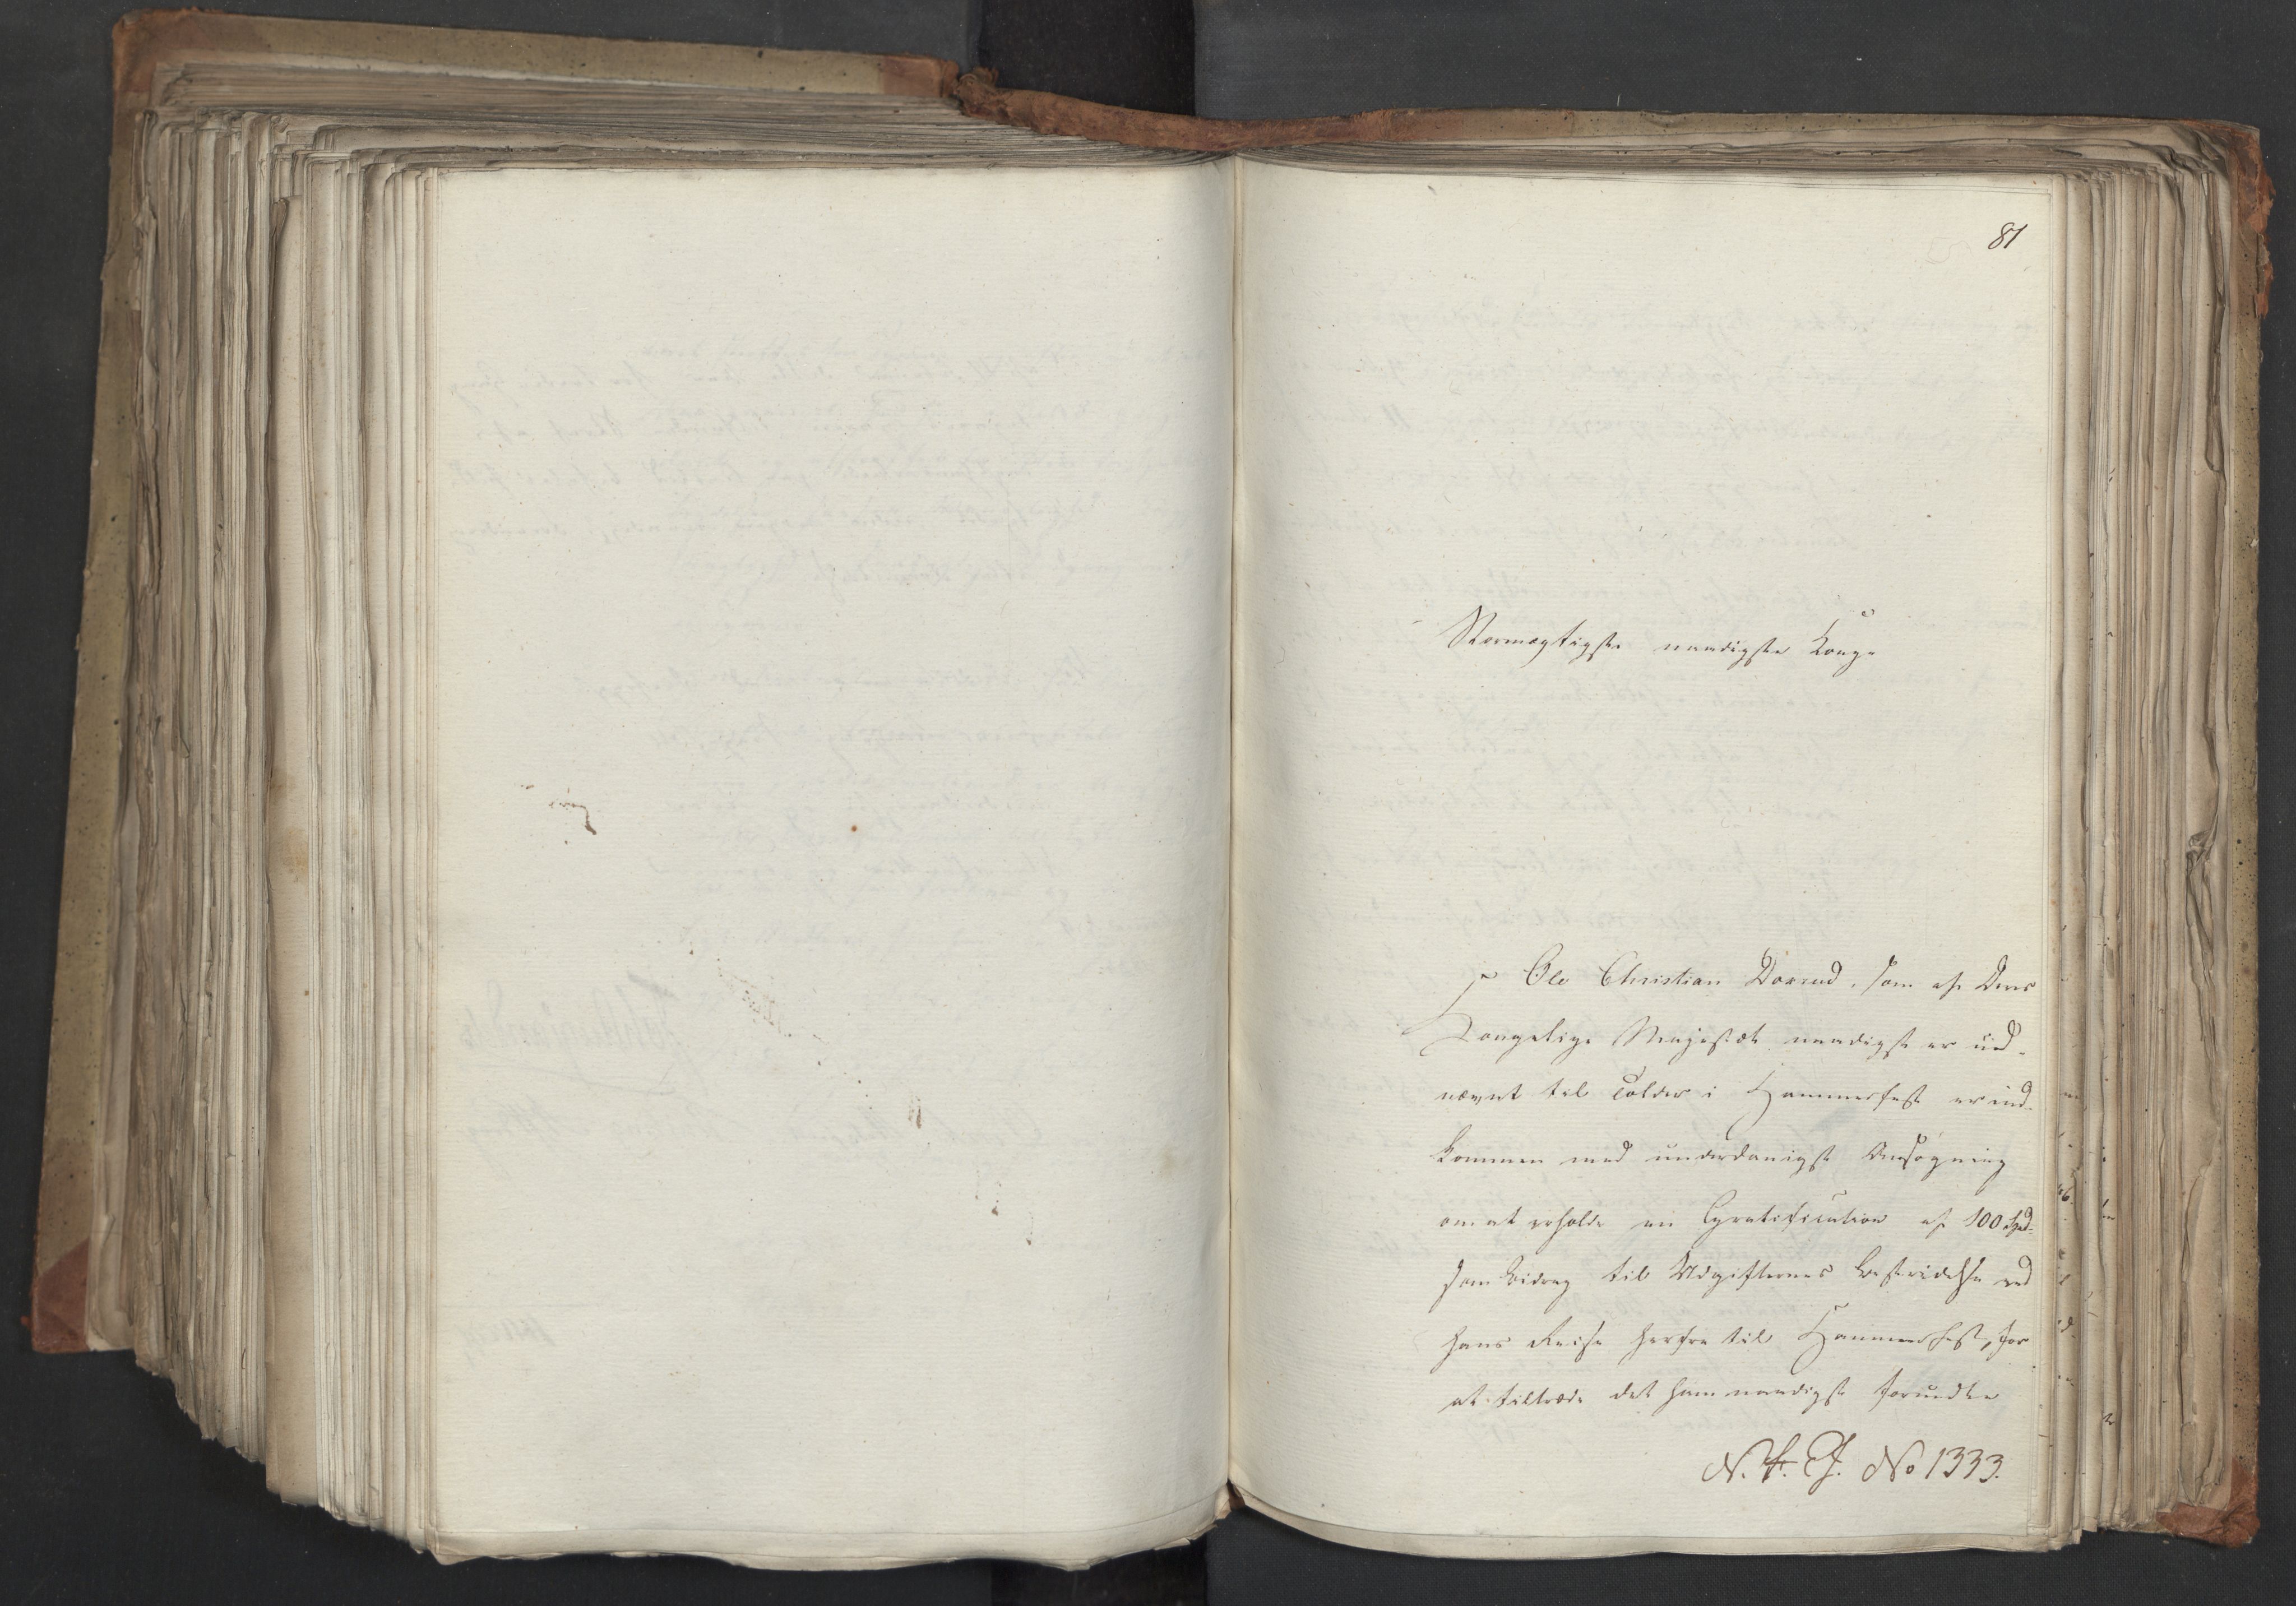 81
Stormægtigste naadigste Konge
Ole Christian Dorrud, som af Deres
Kongelige Majestæt naadigst er ud-
nævnt til Tolder i Hammerfest er ind-
kommen med underdanigst Ansøgning
om at erholde en Gratification af 100 Spd.
som Bidrag til Udgifternes Bestridelse ved
hans Reise herfra til Hammerfest, for
at tiltræde det ham naadigst forundte
No 1333.